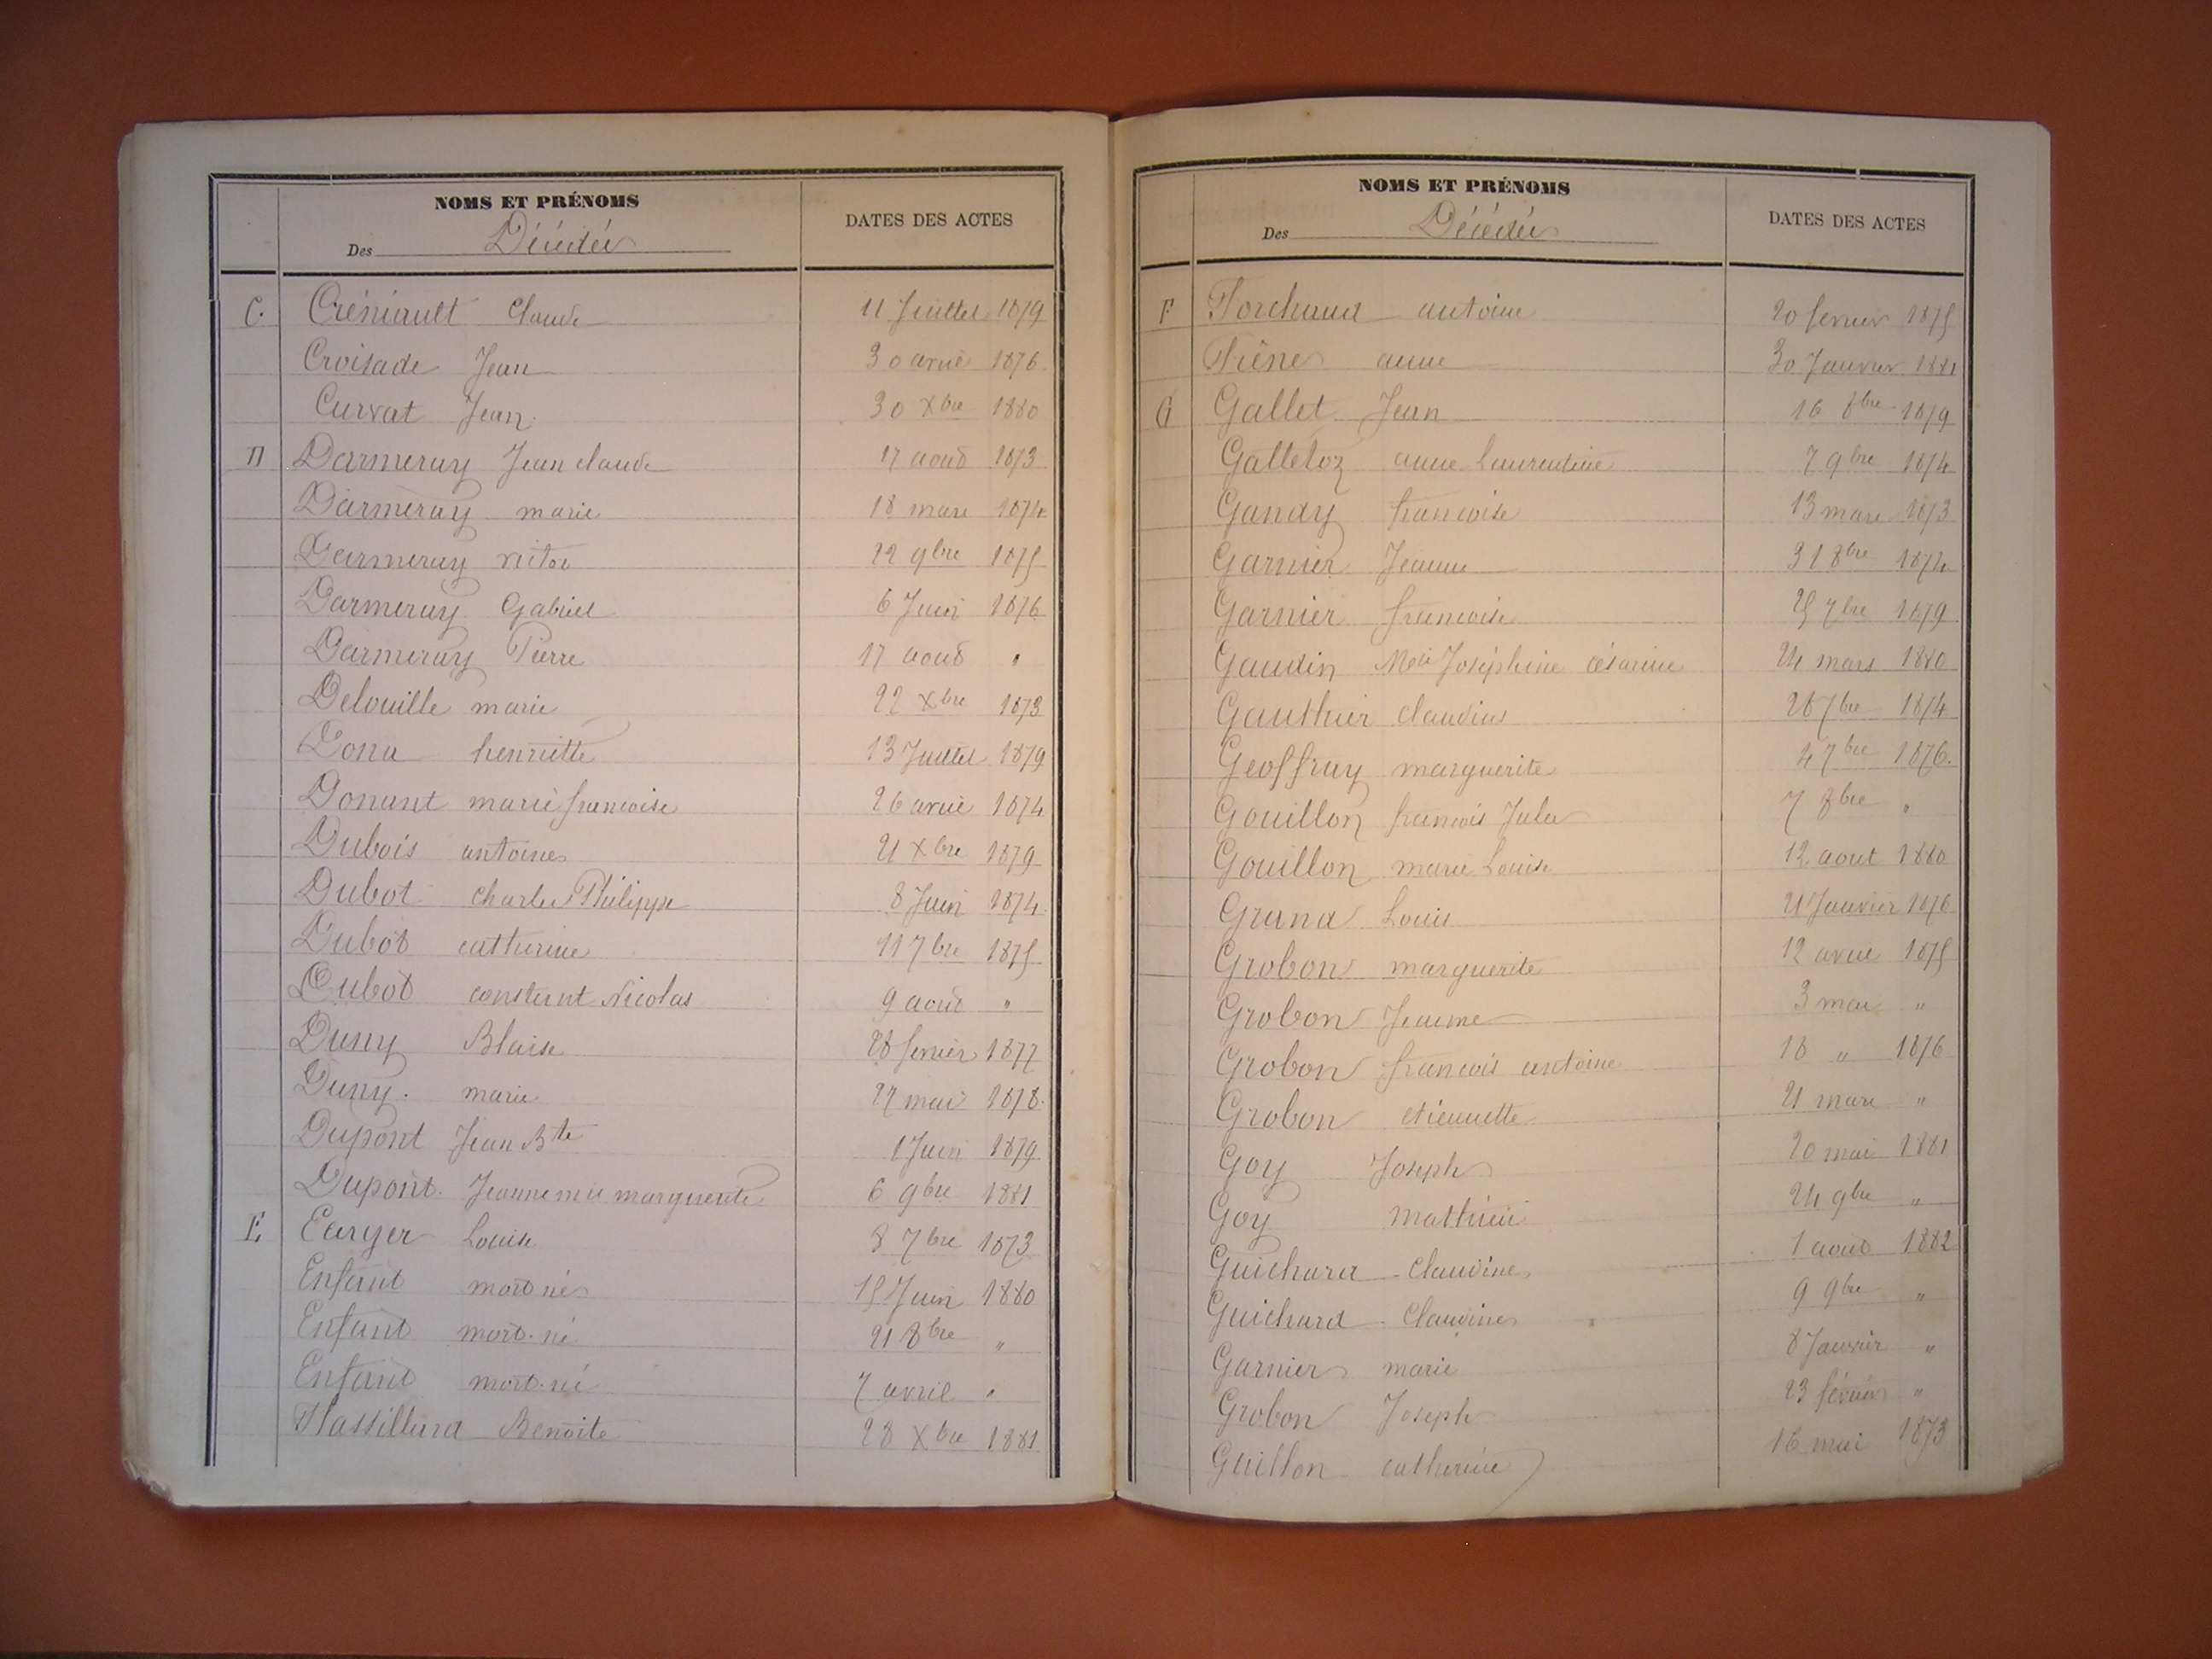 NOMS ET PRÉNOMS
Des Décédés
DATES DES ACTES
C. Créniault Claude 11 Juillet 1879
Croisade Jean 30 avril 1876
Curvat Jean 30 Xbre 1880
D Darmeray Jean claude 17 août 1873
Darmeray marie 18 mars 1874
Darmeray victor 22 9bre 1875
Darmeray Gabriel 6 Juin 1876
Darmeray Pierre 17 août "
Delouille marie 22 Xbre 1873
Dona henriette 13 Juillet 1879
Donant marie francoise 26 avril 1874
Dubois antoine 21 Xbre 1879
Dubot charles Philippe 8 Juin 1874
Dubot catherine 11 7bre 1875
Dubot constant Nicolas 9 août "
Duny Blaise 28 fevrier 1877
Duny. marie 27 mai 1878.
Dupont Jean Bte 1 Juin 1879
Dupont. Jeanne mie marguerite 6 9bre 1881
E Earyer Louise 8 7bre 1873
Enfant mort né 15 Juin 1880
Enfant mort-né 21 8bre "
Enfant mort-né 7 avril "
Flassillard Benoite 28 Xbre 1881
NOMS ET PRÉNOMS
Des Décédés
DATES DES ACTES
F Forchaud antoine 20 fevrier 1875
Frêne anne 30 Janvier 1881
G Gallet Jean 16 8bre 1879
Galletoz anne Laurentine 7 9bre 1874
Gandy francoise 13 mars 1873
Garnier Jeanne 31 8bre 1874
Garnier francoise 25 7bre 1879
Gaudin Marie Joséphine césarine 24 mars 1880
Gauthier claudius 28 7bre 1874
Geoffray marguerite 4 7bre 1876.
Gouillon francois Jules 7 8bre "
Gouillon marie Louise 12 aout 1880
Grand Louis 21 Janvier 1876
Grobon marguerite 12 avril 1875
Grobon Jeanne 3 mai "
Grobon francois antoine 18 " 1876
Grobon etiennette 21 mars "
Goy Joseph 20 mai 1881
Goy mathieu 24 9bre "
Guichard Claudine 1 août 1882
Guichard Claudine 9 9bre "
Garnier marie 8 Janvier "
Grobon Joseph 23 février "
Guillon catherine 16 mai 1873